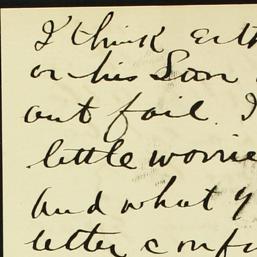 I think
or his Son
out fail. I
little worrie
And what y
letter confi